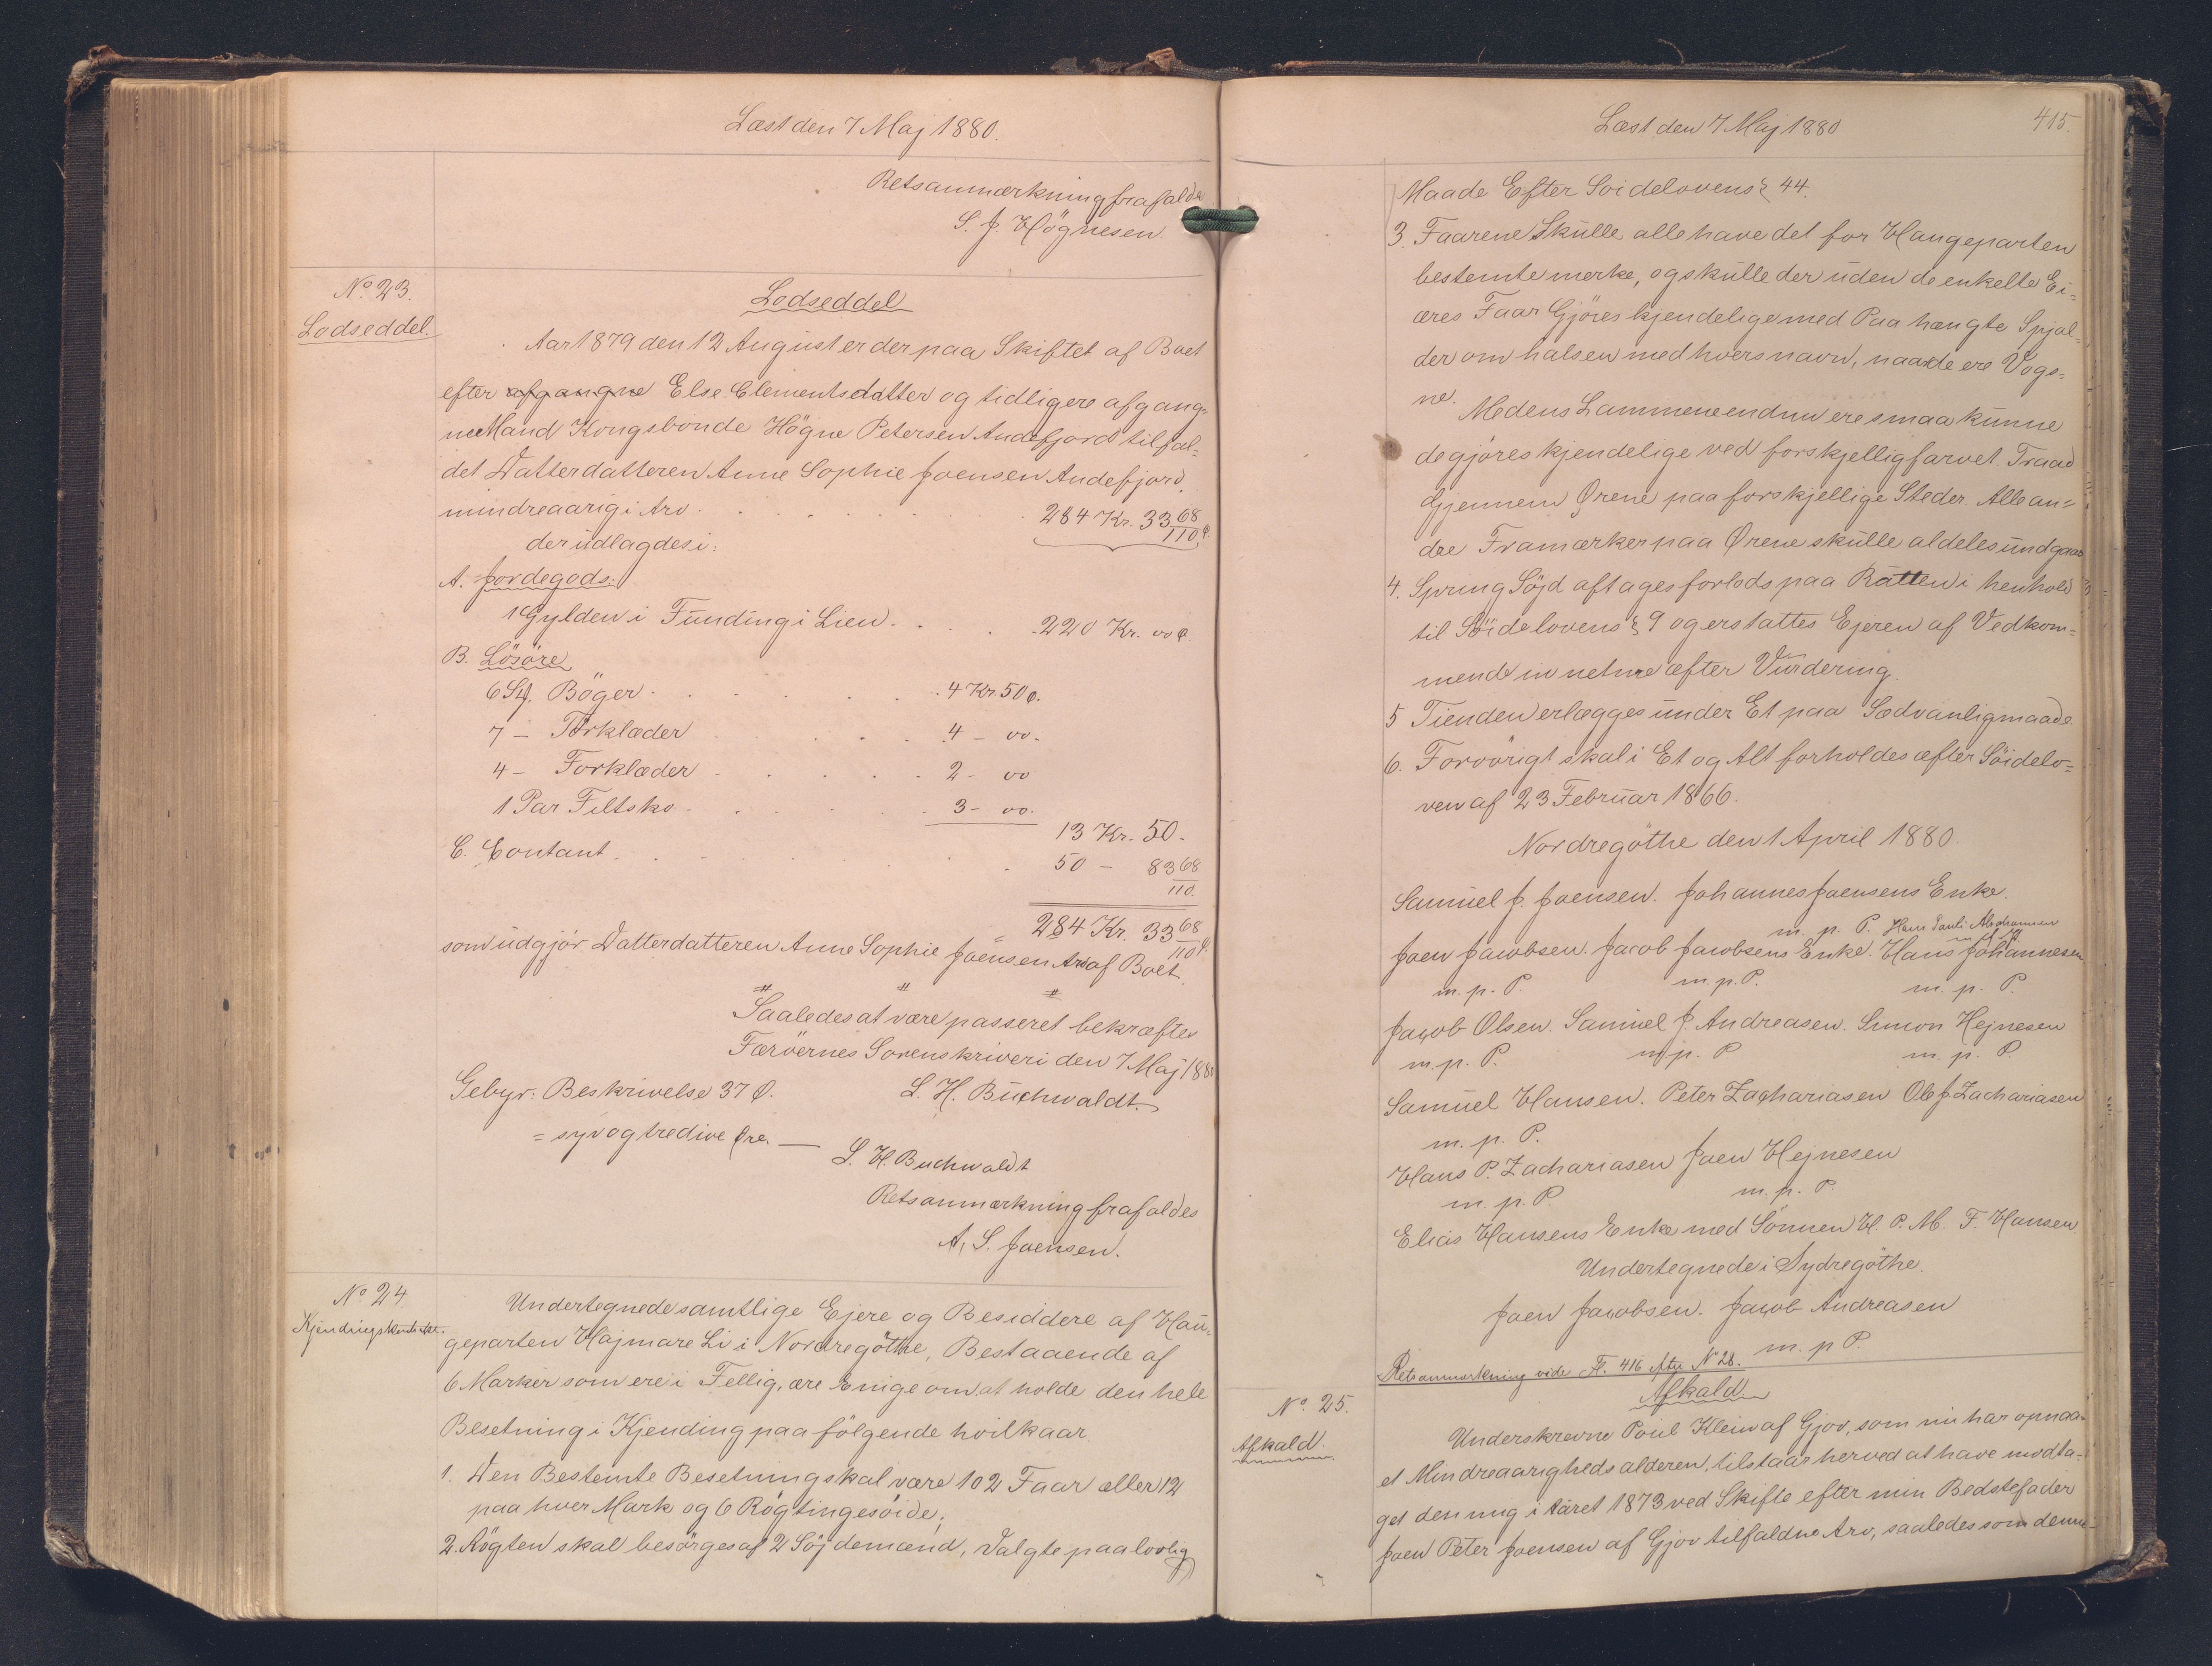 Læst den 7 Maj 1880.
Retsanmærkning frafaldes
S. J. Högnesen.
No. 23.
Lodseddel.
Lodseddel
Aar 1879 den 12 August er der paa Skiftet af Boet
efter afgangne Else Clementsdatter og tidligere afgang-
ne Mand Kongsbonde Högne Petersen Andefjord tilfal-
det Datterdatteren Anne Sophie Joensen Andefjord,
mindreaarig i Arv . . . 284 Kr. 33 68/110 Ø.
der udlagdes i:
A. Jordegods:
1 Gylden i Funding i Lien . . . 220 Kr. 00 Ø.
B. Lösöre
6 St. Böger . . . 4 Kr. 50 Ø.
7 — Törklæder . . . 4 — 00.
4 — Forklæder . . . 2 — 00
1 Par Filtsko . . . 3 — 00.
13 Kr. 50.
C. Contant . . . 50 — 83 68/110.
284 Kr. 33 68/110 Ø.
som udgjör Datterdatteren Anne Sophie Joensen Arv af Boet.
Saaledes at være passeret bekræftes
Færöernes Sorenskriveri den 7 Maj 1880
Gebyr: Beskrivelse 37 Ø. L. H. Buchwaldt.
= syv og tredive Øre. —
L. H. Buchwaldt
Retsanmærkning frafaldes
A. S. Joensen.
No 24.
Kjendingskontrakt.
Undertegnede samtlige Ejere og Besiddere af Hau-
geparten Hájmare Li i Nordregöthe, Bestaaende af
6 Marker som ere i Fellig, ære Enige om at holde den hele
Besetning i Kjending paa fölgende hvilkaar.
1. Den Bestemte Besetning skal være 102 Faar eller 12
paa hver Mark og 6 Rögtingesöide;
2. Rögten skal besörges af 2 Söjdemænd, Valgte paa lovlig
Læst den 7 Maj 1880
415.
Maade Efter Soidelovens § 44.
3. Faarene Skulle alle have det for Haugeparten
bestemte merke, og skulle der uden de enkelte Ei-
æres Faar Gjöres kjendelige med Paa hængte Spjal-
der om halsen med hvers navn, naar de ere Vogs-
ne.
Medens Lammene endnu ere smaa kunne
de gjöres kjendelige ved forskjellig farvet Traad
Gjennem Ørene paa forskjellige Steder. Alle an-
dre Framærker paa Ørene skulle aldeles undgaaes
4. Spring Söjd aftages forlods paa Rätten i henhold
til Söidelovens § 9 og erstattes Ejeren af Vedkom-
mende in neturæ æfter Vurdering.
5 Tienden erlægges under Et paa Sædvanlig maade
6. Forövrigt skal i Et og Alt forholdes æfter Söidelo-
ven af 23 Februar 1866.
Nordregöthe den 1 April 1880.
Samuel J. Joensen. Johannes Joensens Enke.
m. p. P. Hans Pauli Abrahamsen
Joen Jacobsen. Jacob Jacobsens Enke. Hans Johannesen
m. p. P. m. p. P. m. p. P.
Jacob Olsen. Samuel J. Andreasen. Simon Hejnesen
m. p. P. m. p. P m. p. P.
Samuel Hansen. Peter Zachariasen Ole J. Zachariasen
m. p. P.
Hans P. Zachariasen Joen Hejnesen
m. p. P. m. p. P.
Elias Hansens Enke med Sönnen H. P. M. F. Hansen.
Undertegnede i Sydregöthe.
Joen Jacobsen. Jacob Andreasen
m. p P.
Retsanmærkning vide Fl. 416 efter No 28.
No. 25.
Afkald.
Afkald
Underskrevne Poul Klein af Gjov, som nu har opnaa-
et Mindreaarigheds alderen, tilstaar herved at have modta-
get den mig i Aaret 1873 ved Skifte efter min Bedstefader
Joen Peter Joensen af Gjov tilfaldne Arv, saaledes som denne